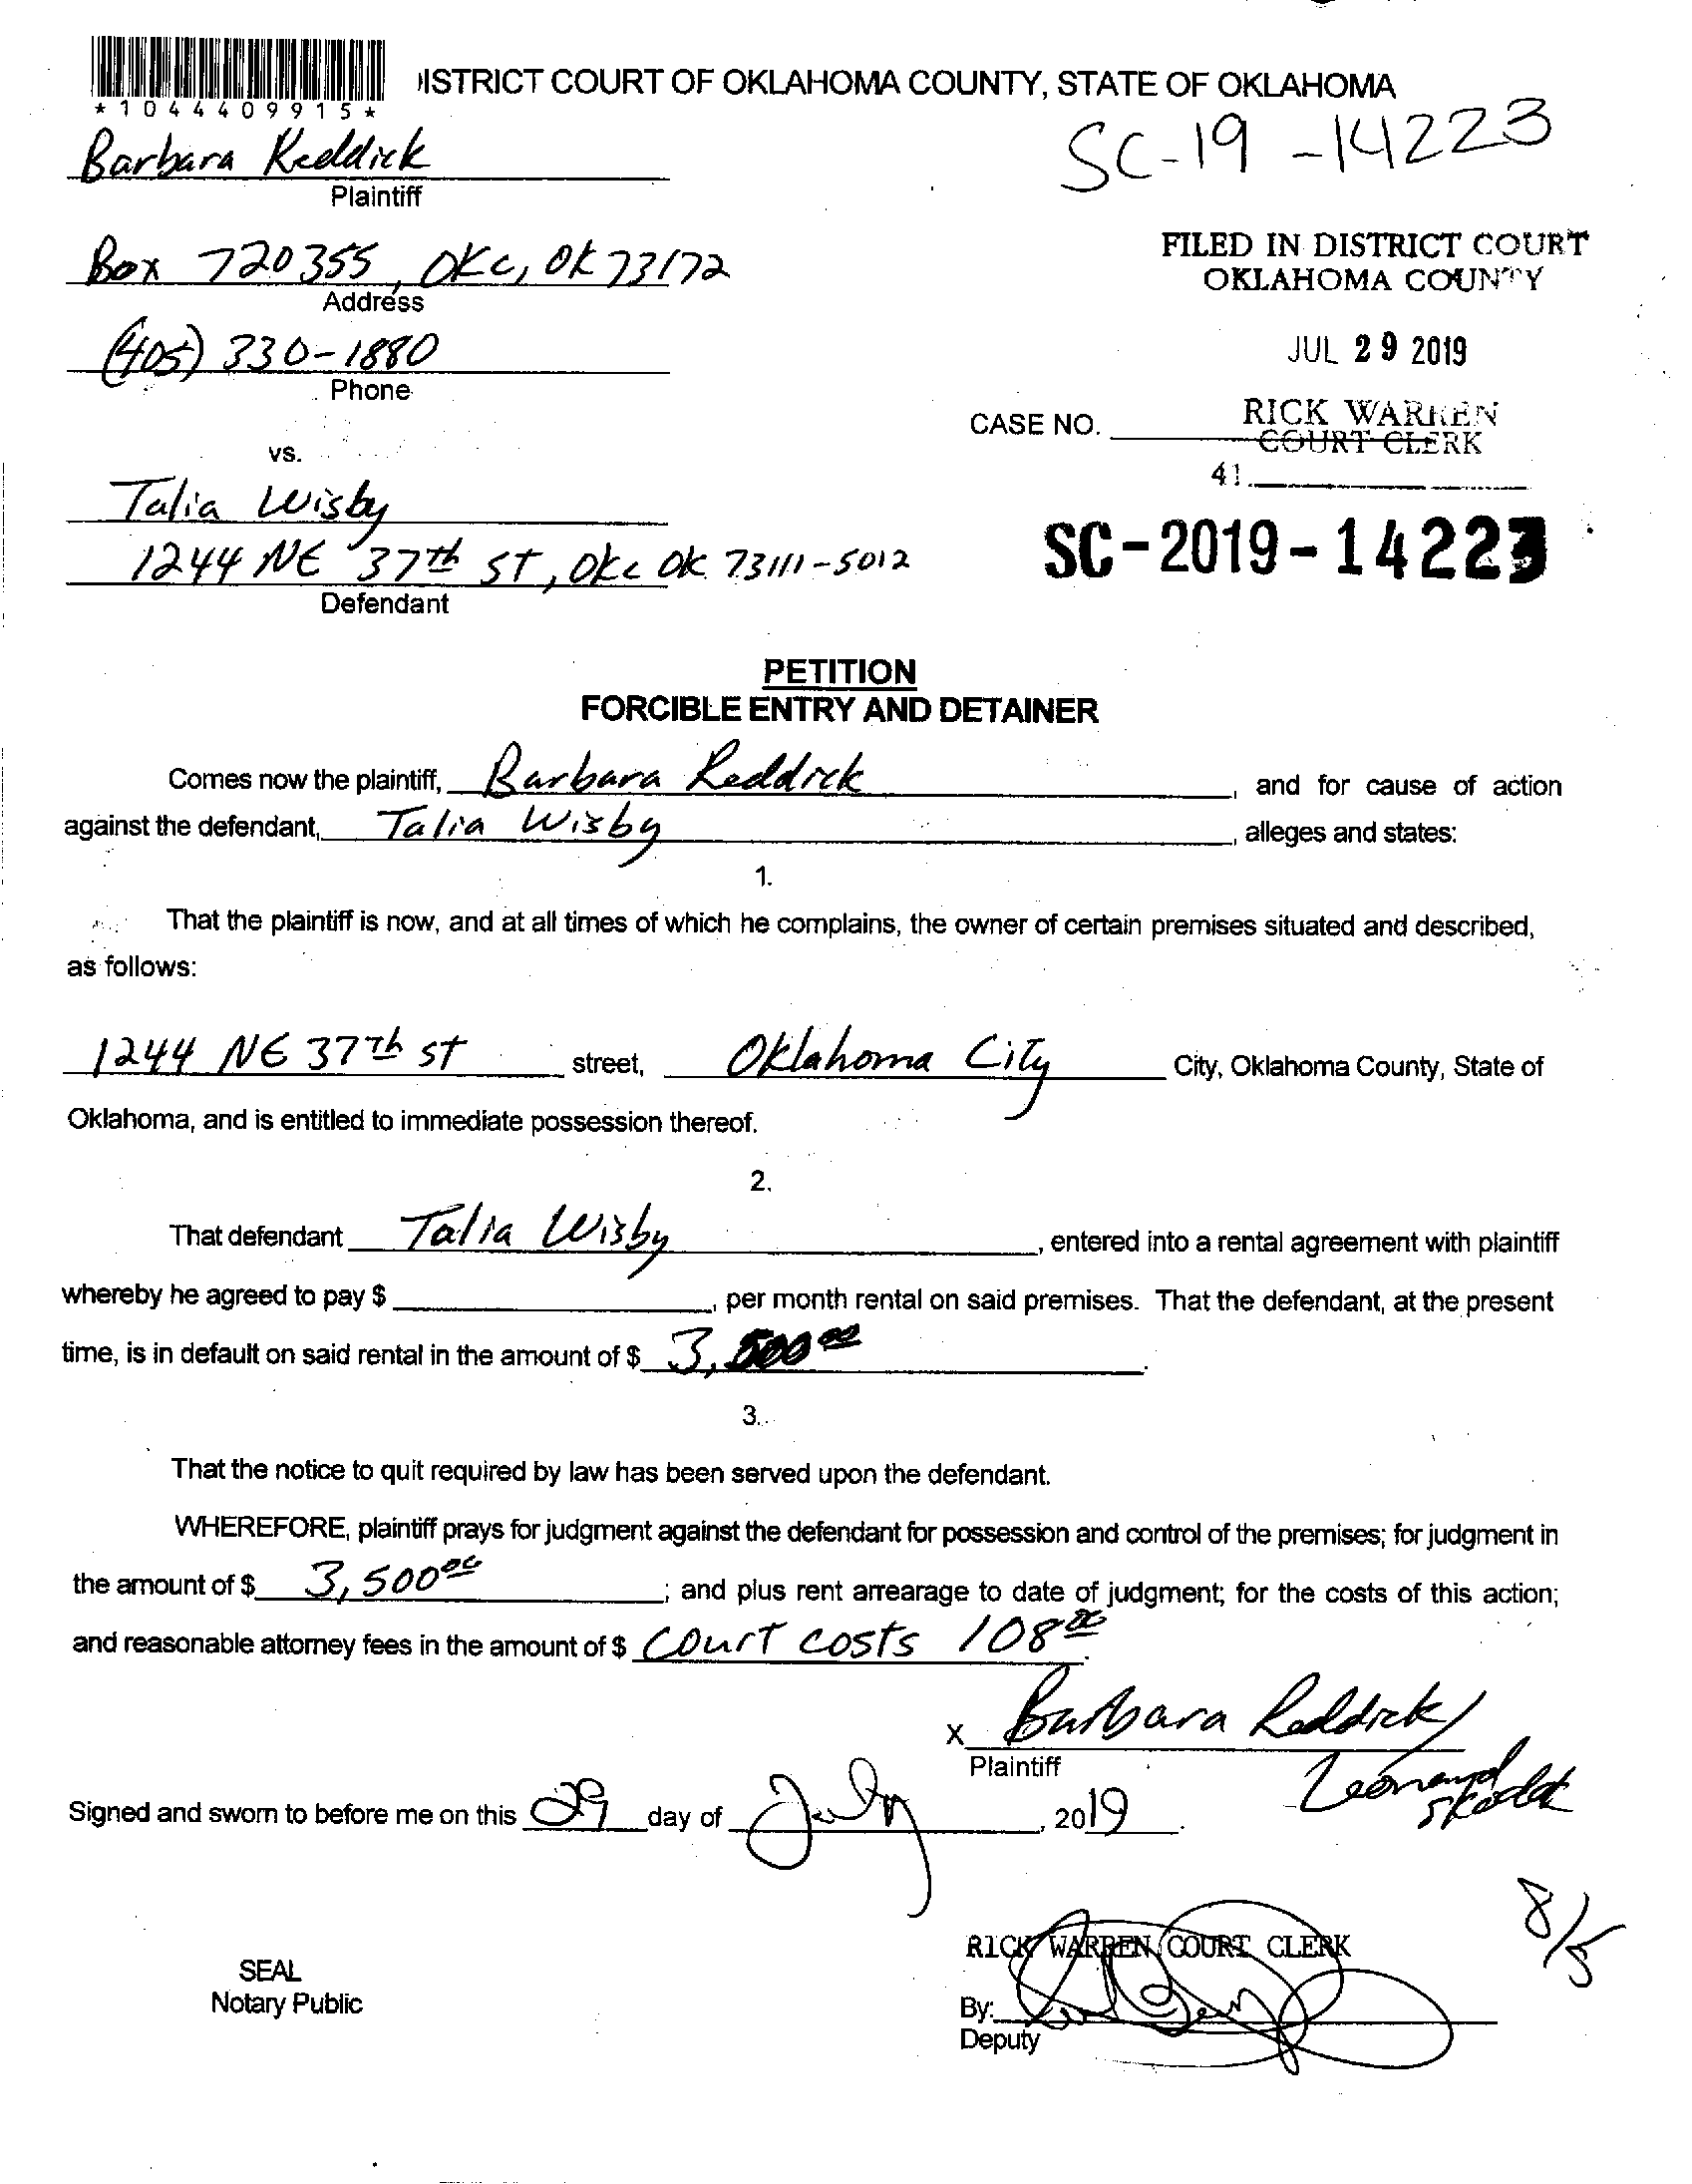 *1044409915*
ISTRICT COURT OF OKLAHOMA COUNTY, STATE OF OKLAHOMA
Barbara Reddick
Plaintiff
SC-19-14223
Box 720355, OKC, OK 73172
Address
FILED IN DISTRICT COURT
OKLAHOMA COUNTY
(405) 330-1880
Phone
JUL 29 2019
CASE NO.
RICK WARREN
COURT CLERK
vs.
41
Talia Wisby
1244 NE 37th ST, OKC OK 73111-5012
Defendant
SC-2019-14223
PETITION
FORCIBLE ENTRY AND DETAINER
Comes now the plaintiff, Barbara Reddick, and for cause of action
against the defendant, Talia Wisby, alleges and states:
1.
That the plaintiff is now, and at all times of which he complains, the owner of certain premises situated and described,
as follows:
1244 NE 37Th ST street, Oklahoma City City, Oklahoma County, State of
Oklahoma, and is entitled to immediate possession thereof.
2.
That defendant Talia Wisby, entered into a rental agreement with plaintiff
whereby he agreed to pay $, per month rental on said premises. That the defendant, at the present
time, is in default on said rental in the amount of $ 3,500 00.
3.
That the notice to quit required by law has been served upon the defendant.
WHEREFORE, plaintiff prays for judgment against the defendant for possession and control of the premises; for judgment in
the amount of $ 3,500 00; and plus rent arrearage to date of judgment; for the costs of this action;
and reasonable attorney fees in the amount of $ Court costs 108 00.
X Barbara Reddick/
Plaintiff
Leonard
Signed and sworn to before me on this 29 day of July, 2019.
8/5
RICK WARREN COURT CLERK
SEAL
Notary Public
By:
Deputy